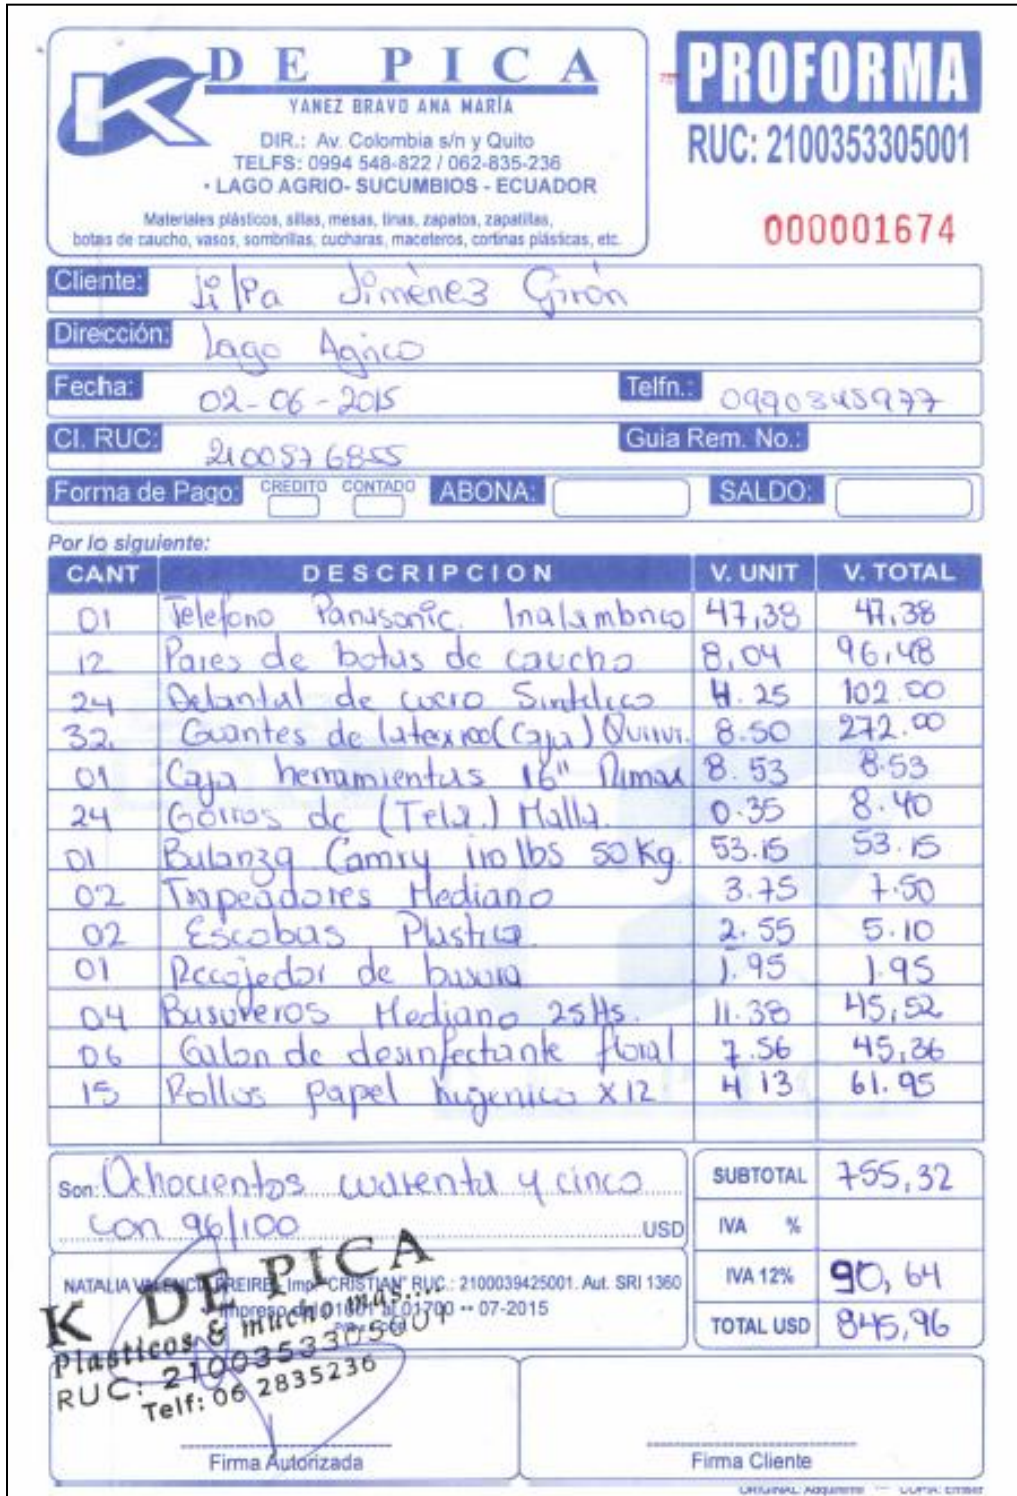 K DE PICA
YANEZ BRAVO ANA MARÍA
DIR.: Av. Colombia s/n y Quito
TELFS: 0994 548-822 / 062-835-236
• LAGO AGRIO- SUCUMBIOS - ECUADOR
Materiales plásticos, sillas, mesas, tinas, zapatos, zapatillas,
botas de caucho, vasos, sombrillas, cucharas, maceteros, cortinas plásticas, etc.
PROFORMA
RUC: 2100353305001
000001674
Cliente: Jimènez Girón
Dirección: Lago Agrico
Fecha: 02-06-2015 Telfn.: 0990345977
CI. RUC: 2100576855 Guia Rem. No.:
Forma de Pago: CREDITO CONTADO ABONA: SALDO:
Por lo siguiente:
CANT DESCRIPCION V. UNIT V. TOTAL
01 Telefono Panasonic. Inalambrico 47,38 47,38
12 Pares de botas de caucho 8,04 96,48
24 Delantal de cuero Sintetico 4.25 102.00
32. Guantes de latex (Caja) 8.50 272.00
01 Caja herramientas 16" Rimax 8.53 8.53
24 Gorros de (Tela.) Malla. 0.35 8.40
01 Balanza Camry 110 lbs 50 Kg. 53.15 53.15
02 Trapeadores Mediano 3.75 7.50
02 Escobas Plastica 2.55 5.10
01 Recojedor de basura 1.95 1.95
04 Basureros Mediano 25 lts. 11.38 45,52
06 Galon de desinfectante floral 7.56 45,36
15 Rollos papel higenico X12 4.13 61.95
Son: Ochocientos cuarenta y cinco
con 96/100 USD
SUBTOTAL 755,32
IVA %
IVA 12% 90,64
TOTAL USD 845,96
NATALIA FREIRE Imp. "CRISTIAN" RUC.: 2100039425001. Aut. SRI 1360
Impreso del 01601 al 01700 -- 07-2015
K DE PICA
Plasticos & mucho mas....
RUC: 2100353305001
Telf: 06 2835236
Firma Autorizada
Firma Cliente
ORIGINAL: Adquirente --- COPIA: Emisor